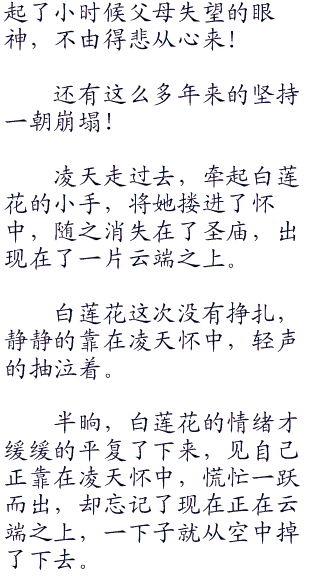 起了小时候父母失望的眼
神，不由得悲从心来！
还有这么多年来的坚持
一朝崩塌！
凌天走过去，牵起白莲
花的小手，将她搂进了怀
中，随之消失在了圣庙，出
现在了一片云端之上。
白莲花这次没有挣扎，
静静的靠在凌天怀中，轻声
的抽泣着。
半晌，白莲花的情绪才
缓缓的平复了下来，见自己
正靠在凌天怀中，慌忙一跃
而出，却忘记了现在正在云
端之上，一下子就从空中掉
了下去。